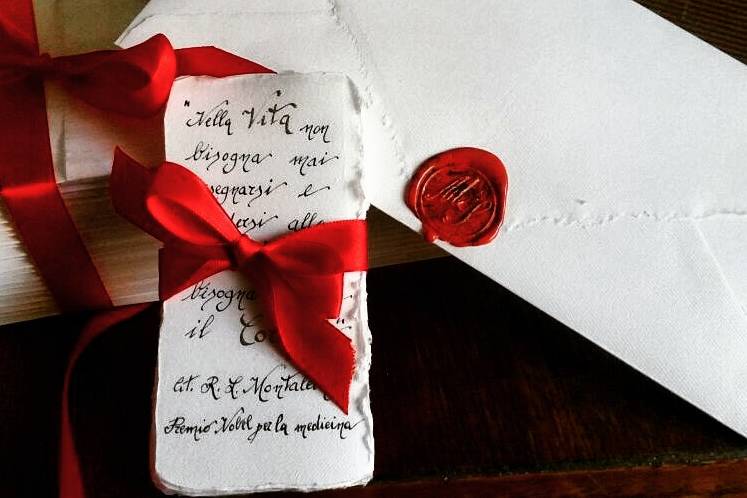 "Nella Vita non
bisogna mai
segnarsi e
dersi all
bisogna
il Co
cit. R. L. Montal
Premio Nobel per la medicina